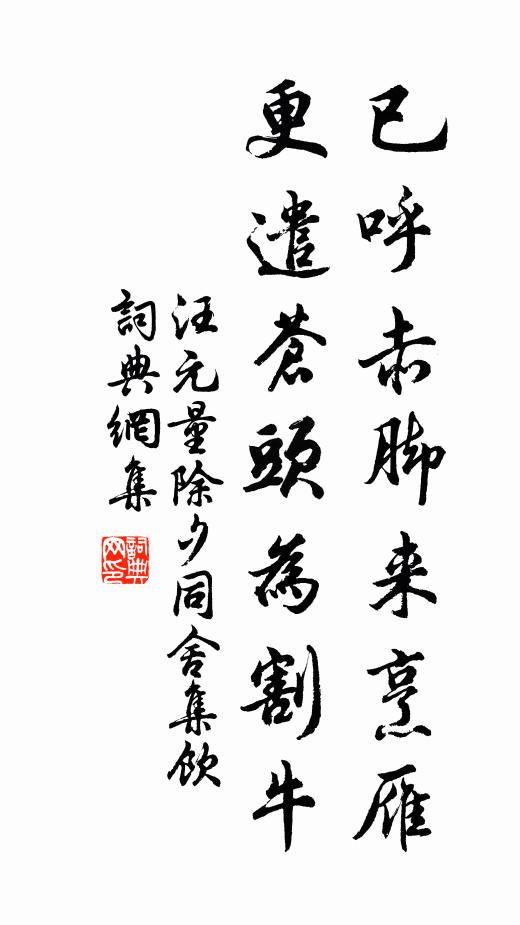 已呼赤脚来烹雁
更遣蒼頭為割牛
汪元量除夕同舍集飲
詞典網集
詞典
网印